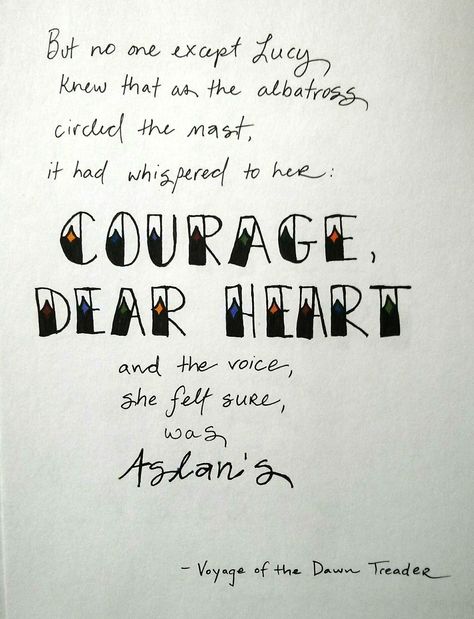 But no one except Lucy
knew that as the albatross
circled the mast,
it had whispered to her:
COURAGE,
DEAR HEART
and the voice,
she felt sure,
was
Aslan's
- Voyage of the Dawn Treader